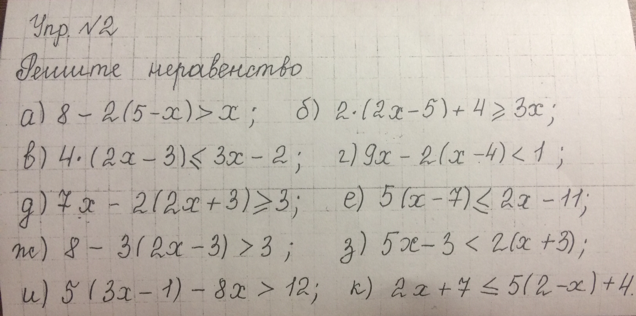 Упр. №2
Решите неравенство
а) 8 - 2(5-x) > x; б) 2·(2x-5)+4 ⩾ 3x;
в) 4·(2x-3) ⩽ 3x-2; г) 9x-2(x-4) < 1;
д) 7x - 2(2x+3) ⩾ 3; е) 5(x-7) ⩽ 2x-11;
ж) 8 - 3(2x-3) > 3; з) 5x-3 < 2(x+3);
и) 5(3x-1)-8x > 12; к) 2x+7 ⩽ 5(2-x)+4.